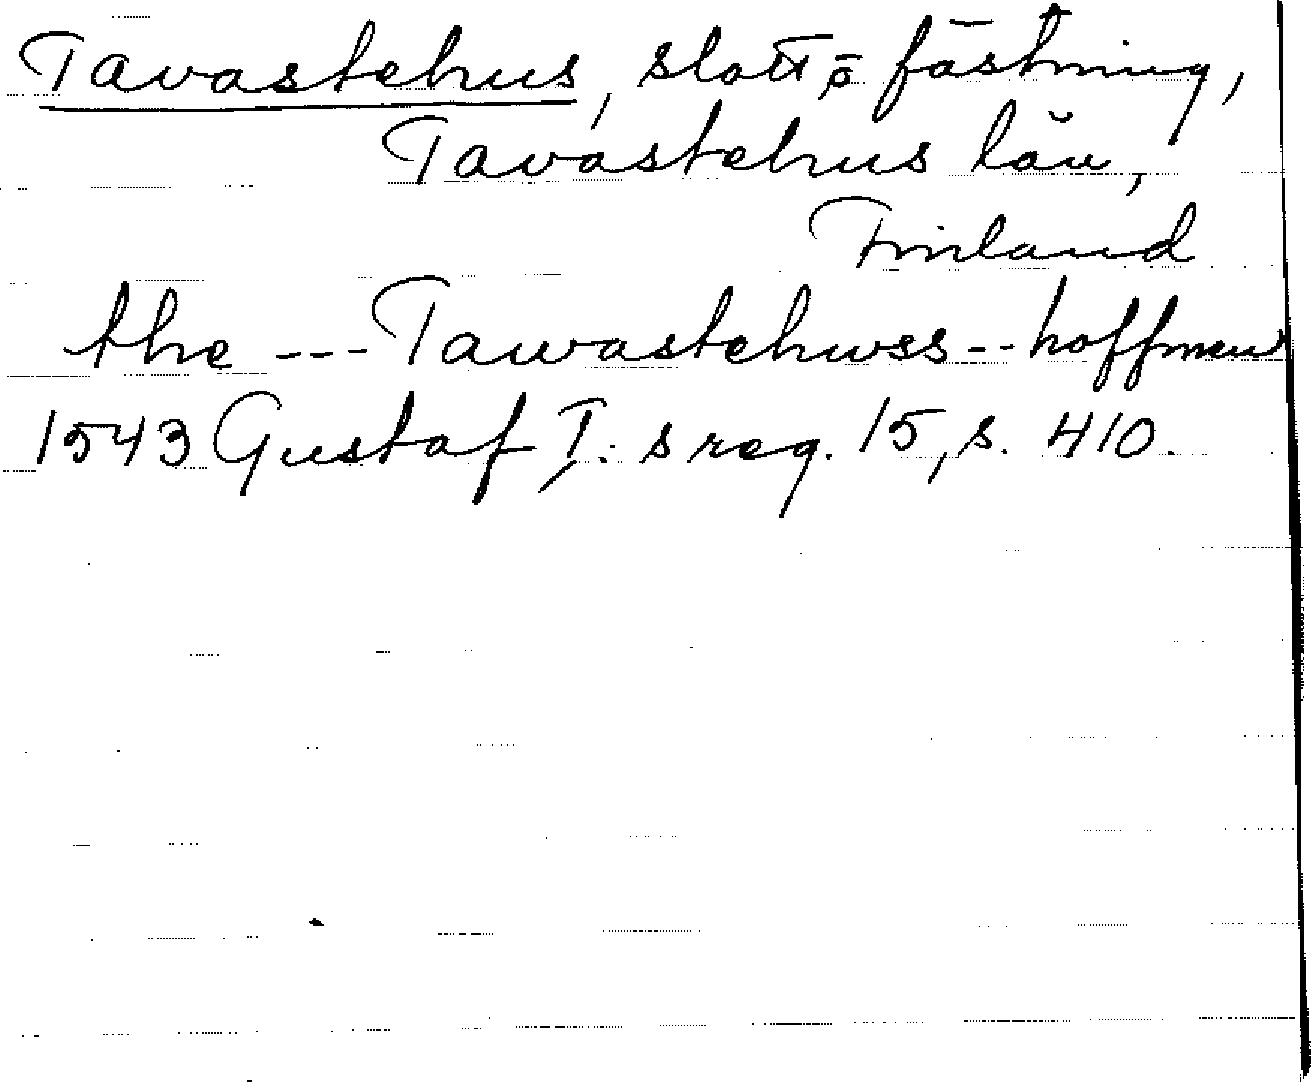 Tavastehus, slott o fästning,
Tavastehus län,
Finland
the --- Tawastehwss -- hoffmen
1543 Gustaf I:s reg. 15, s. 410.